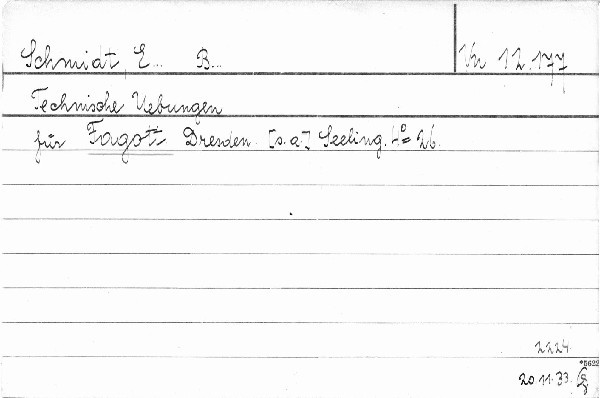 Schmidt, E... B... Vn 12.177
Technische Uebungen
für Fagott Dresden. [s.a.] Seeling. 4° 26.
2224.
*5622
20 11. 33.